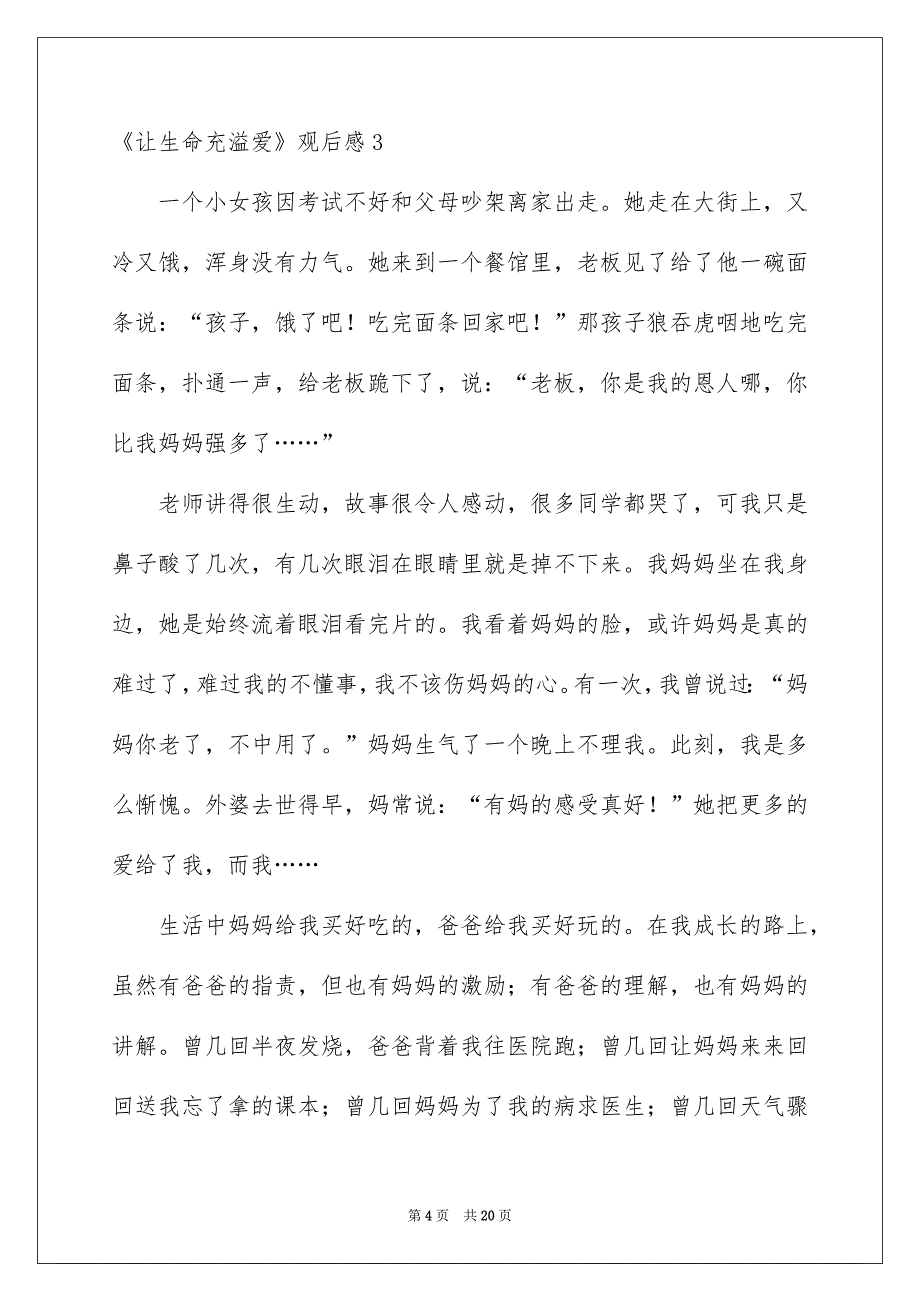 《让生命充溢爱》观后感 3
一个小女孩因考试不好和父母吵架离家出走。她走在大街上，又
冷又饿，浑身没有力气。她来到一个餐馆里，老板见了给了他一碗面
条说：“孩子，饿了吧！吃完面条回家吧！”那孩子狼吞虎咽地吃完
面条，扑通一声，给老板跪下了，说：“老板，你是我的恩人哪，你
比我妈妈强多了……”
老师讲得很生动，故事很令人感动，很多同学都哭了，可我只是
鼻子酸了几次，有几次眼泪在眼睛里就是掉不下来。我妈妈坐在我身
边，她是始终流着眼泪看完片的。我看着妈妈的脸，或许妈妈是真的
难过了，难过我的不懂事，我不该伤妈妈的心。有一次，我曾说过：“妈
妈你老了，不中用了。”妈妈生气了一个晚上不理我。此刻，我是多
么惭愧。外婆去世得早，妈常说：“有妈的感受真好！”她把更多的
爱给了我，而我……
生活中妈妈给我买好吃的，爸爸给我买好玩的。在我成长的路上，
虽然有爸爸的指责，但也有妈妈的激励；有爸爸的理解，也有妈妈的
讲解。曾几回半夜发烧，爸爸背着我往医院跑；曾几回让妈妈来来回
回送我忘了拿的课本；曾几回妈妈为了我的病求医生；曾几回天气骤
第 4 页 共 20 页